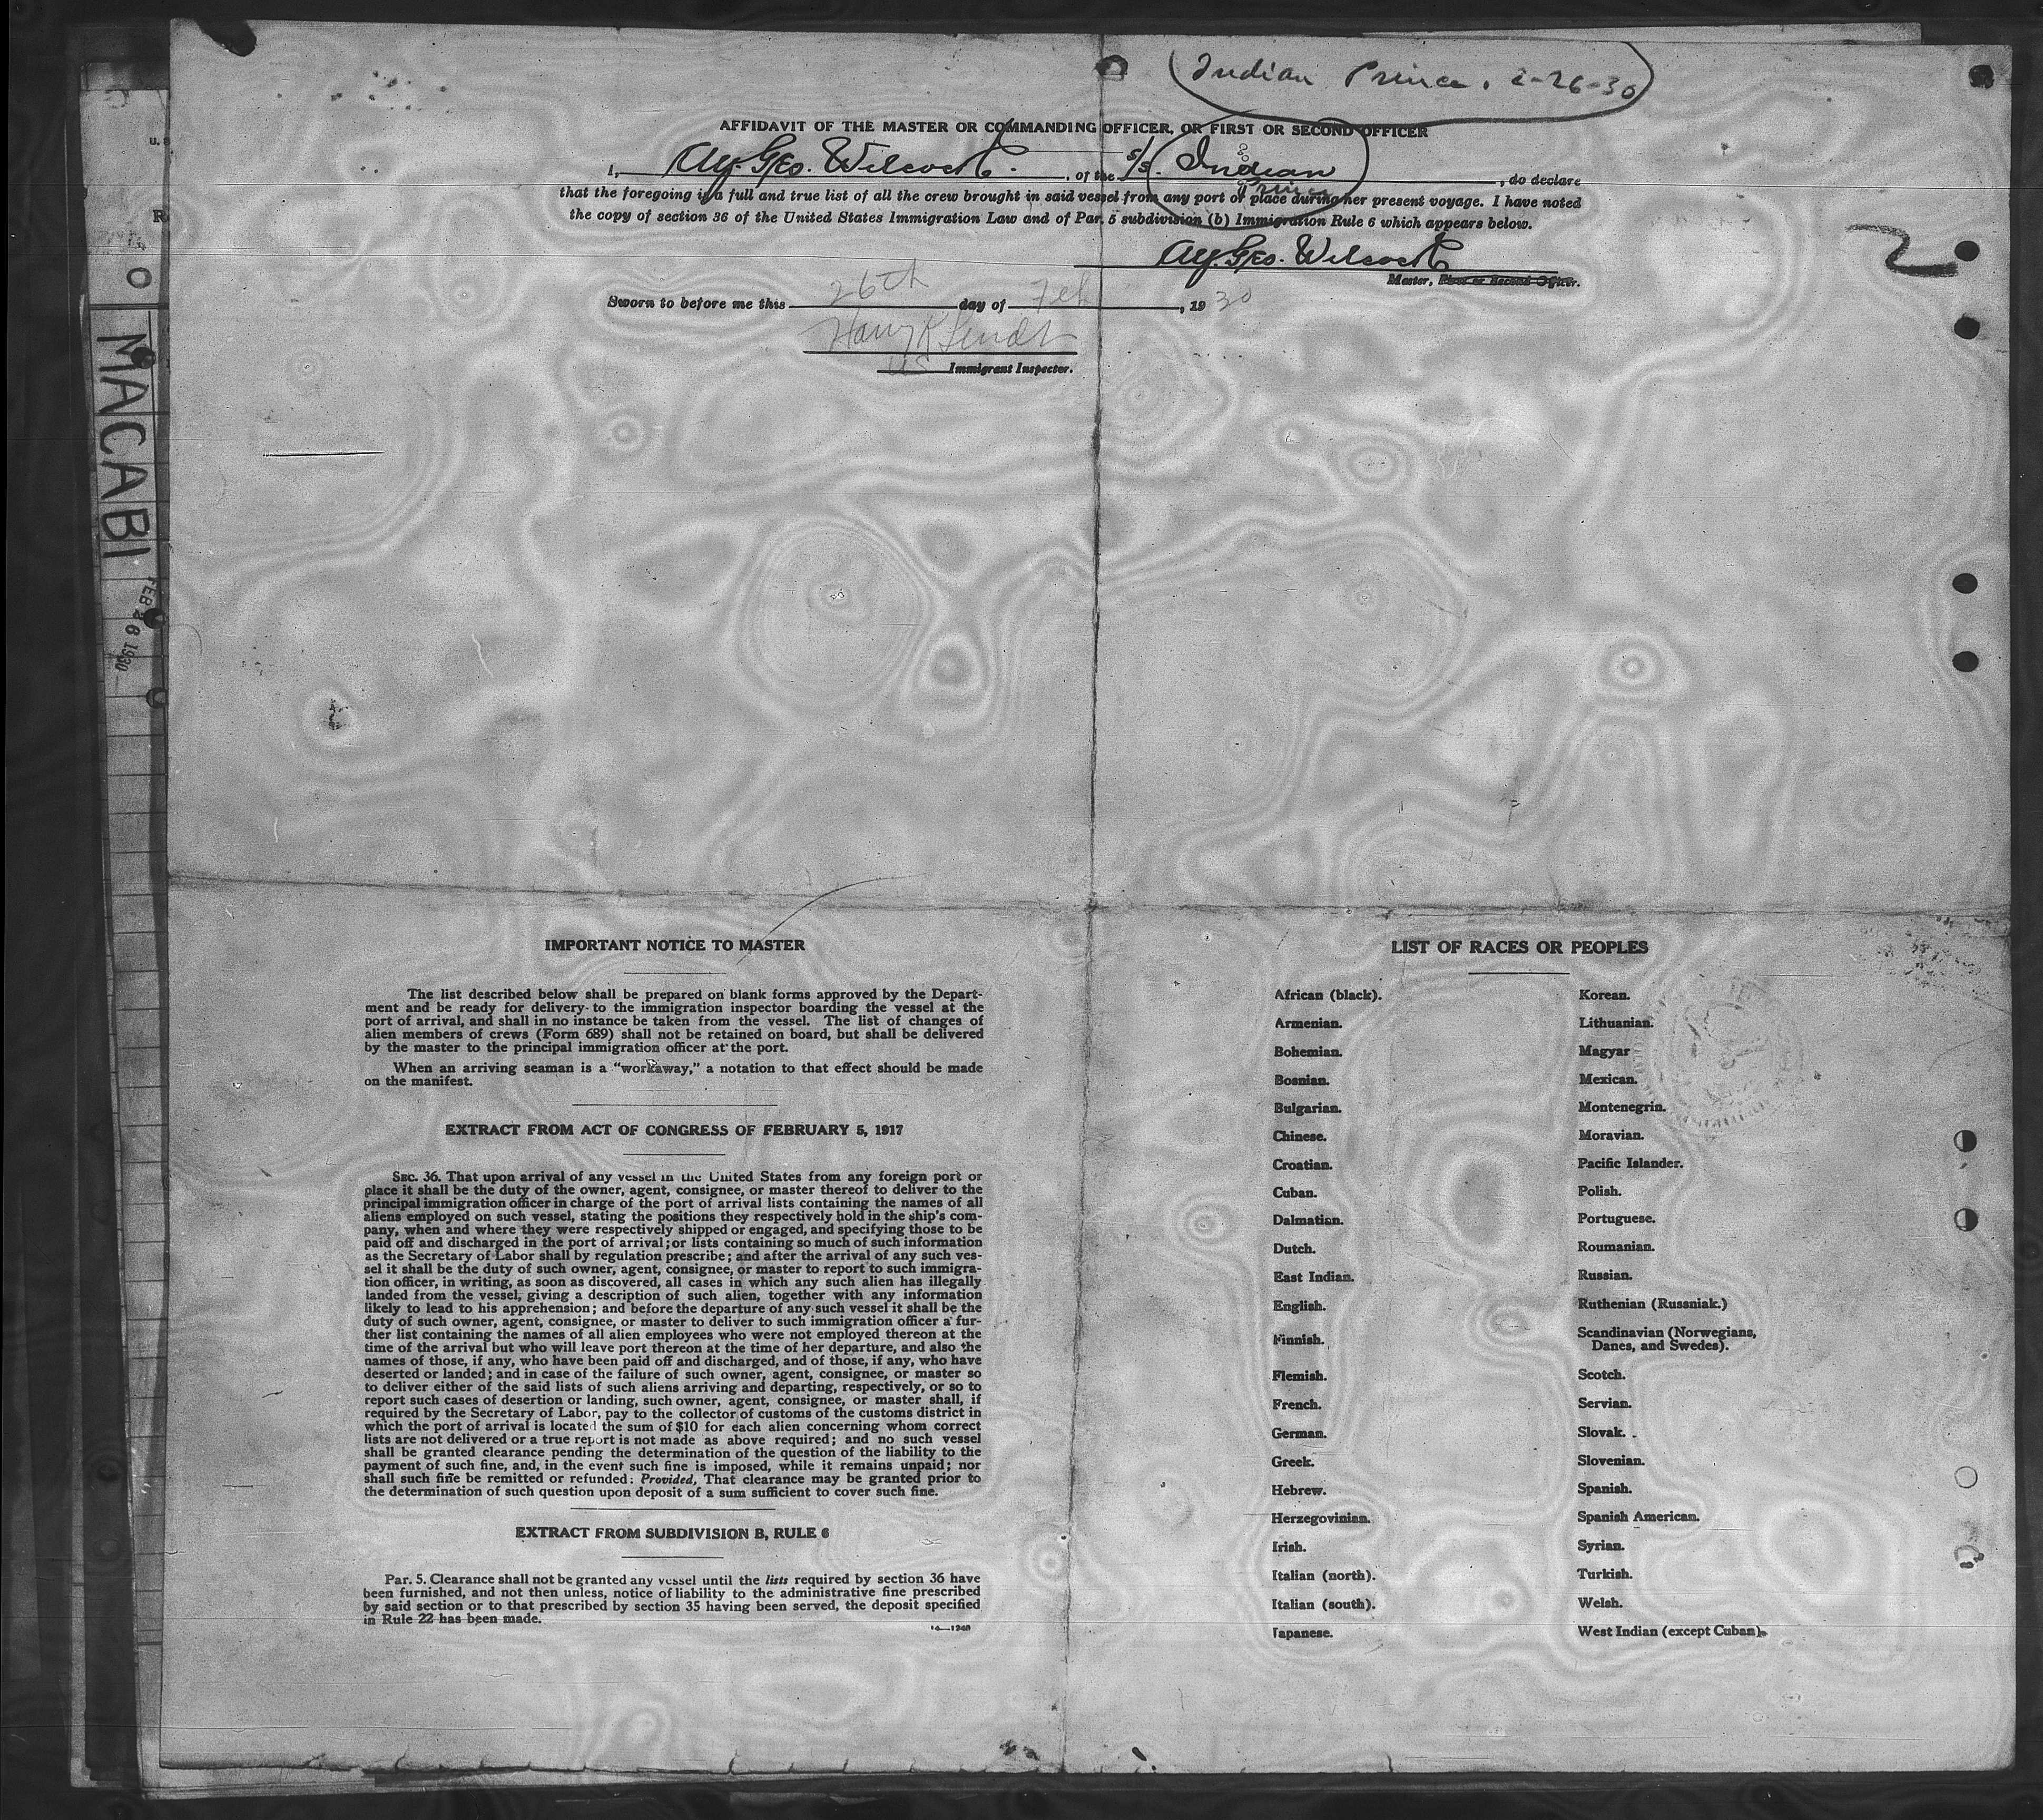 Indian Prince. 2-26-30
AFFIDAVIT OF THE MASTER OR COMMANDING OFFICER, OR FIRST OR SECOND OFFICER
I, Geo. Wilcock, of the S/S. Indian Prince, do declare
that the foregoing is a full and true list of all the crew brought in said vessel from any port or place during her present voyage. I have noted
the copy of section 36 of the United States Immigration Law and of Par. 5 subdivision (b) Immigration Rule 6 which appears below.
Geo. Wilcock
Master, First or Second Officer.
2
Sworn to before me this 26th day of Feb, 1930
Harry K
US Immigrant Inspector.
O
MACABI
FEB 26 1930
IMPORTANT NOTICE TO MASTER
The list described below shall be prepared on blank forms approved by the Depart-
ment and be ready for delivery to the immigration inspector boarding the vessel at the
port of arrival, and shall in no instance be taken from the vessel. The list of changes of
alien members of crews (Form 689) shall not be retained on board, but shall be delivered
by the master to the principal immigration officer at the port.
When an arriving seaman is a "workaway," a notation to that effect should be made
on the manifest.
EXTRACT FROM ACT OF CONGRESS OF FEBRUARY 5, 1917
SEC. 36. That upon arrival of any vessel in the United States from any foreign port or
place it shall be the duty of the owner, agent, consignee, or master thereof to deliver to the
principal immigration officer in charge of the port of arrival lists containing the names of all
aliens employed on such vessel, stating the positions they respectively hold in the ship's com-
pany, when and where they were respectively shipped or engaged, and specifying those to be
paid off and discharged in the port of arrival; or lists containing so much of such information
as the Secretary of Labor shall by regulation prescribe; and after the arrival of any such ves-
sel it shall be the duty of such owner, agent, consignee, or master to report to such immigra-
tion officer, in writing, as soon as discovered, all cases in which any such alien has illegally
landed from the vessel, giving a description of such alien, together with any information
likely to lead to his apprehension; and before the departure of any such vessel it shall be the
duty of such owner, agent, consignee, or master to deliver to such immigration officer a fur-
ther list containing the names of all alien employees who were not employed thereon at the
time of the arrival but who will leave port thereon at the time of her departure, and also the
names of those, if any, who have been paid off and discharged, and of those, if any, who have
deserted or landed; and in case of the failure of such owner, agent, consignee, or master so
to deliver either of the said lists of such aliens arriving and departing, respectively, or so to
report such cases of desertion or landing, such owner, agent, consignee, or master shall, if
required by the Secretary of Labor, pay to the collector of customs of the customs district in
which the port of arrival is located the sum of $10 for each alien concerning whom correct
lists are not delivered or a true report is not made as above required; and no such vessel
shall be granted clearance pending the determination of the question of the liability to the
payment of such fine, and, in the event such fine is imposed, while it remains unpaid; nor
shall such fine be remitted or refunded: Provided, That clearance may be granted prior to
the determination of such question upon deposit of a sum sufficient to cover such fine.
EXTRACT FROM SUBDIVISION B, RULE 6
Par. 5. Clearance shall not be granted any vessel until the lists required by section 36 have
been furnished, and not then unless, notice of liability to the administrative fine prescribed
by said section or to that prescribed by section 35 having been served, the deposit specified
in Rule 22 has been made.
LIST OF RACES OR PEOPLES
African (black).
Armenian.
Bohemian.
Bosnian.
Bulgarian.
Chinese.
Croatian.
Cuban.
Dalmatian.
Dutch.
East Indian.
English.
Finnish.
Flemish.
French.
German.
Greek.
Hebrew.
Herzegovinian.
Irish.
Italian (north).
Italian (south).
Japanese.
Korean.
Lithuanian.
Magyar
Mexican.
Montenegrin.
Moravian.
Pacific Islander.
Polish.
Portuguese.
Roumanian.
Russian.
Ruthenian (Russniak.)
Scandinavian (Norwegians,
Danes, and Swedes).
Scotch.
Servian.
Slovak.
Slovenian.
Spanish.
Spanish American.
Syrian.
Turkish.
Welsh.
West Indian (except Cuban).